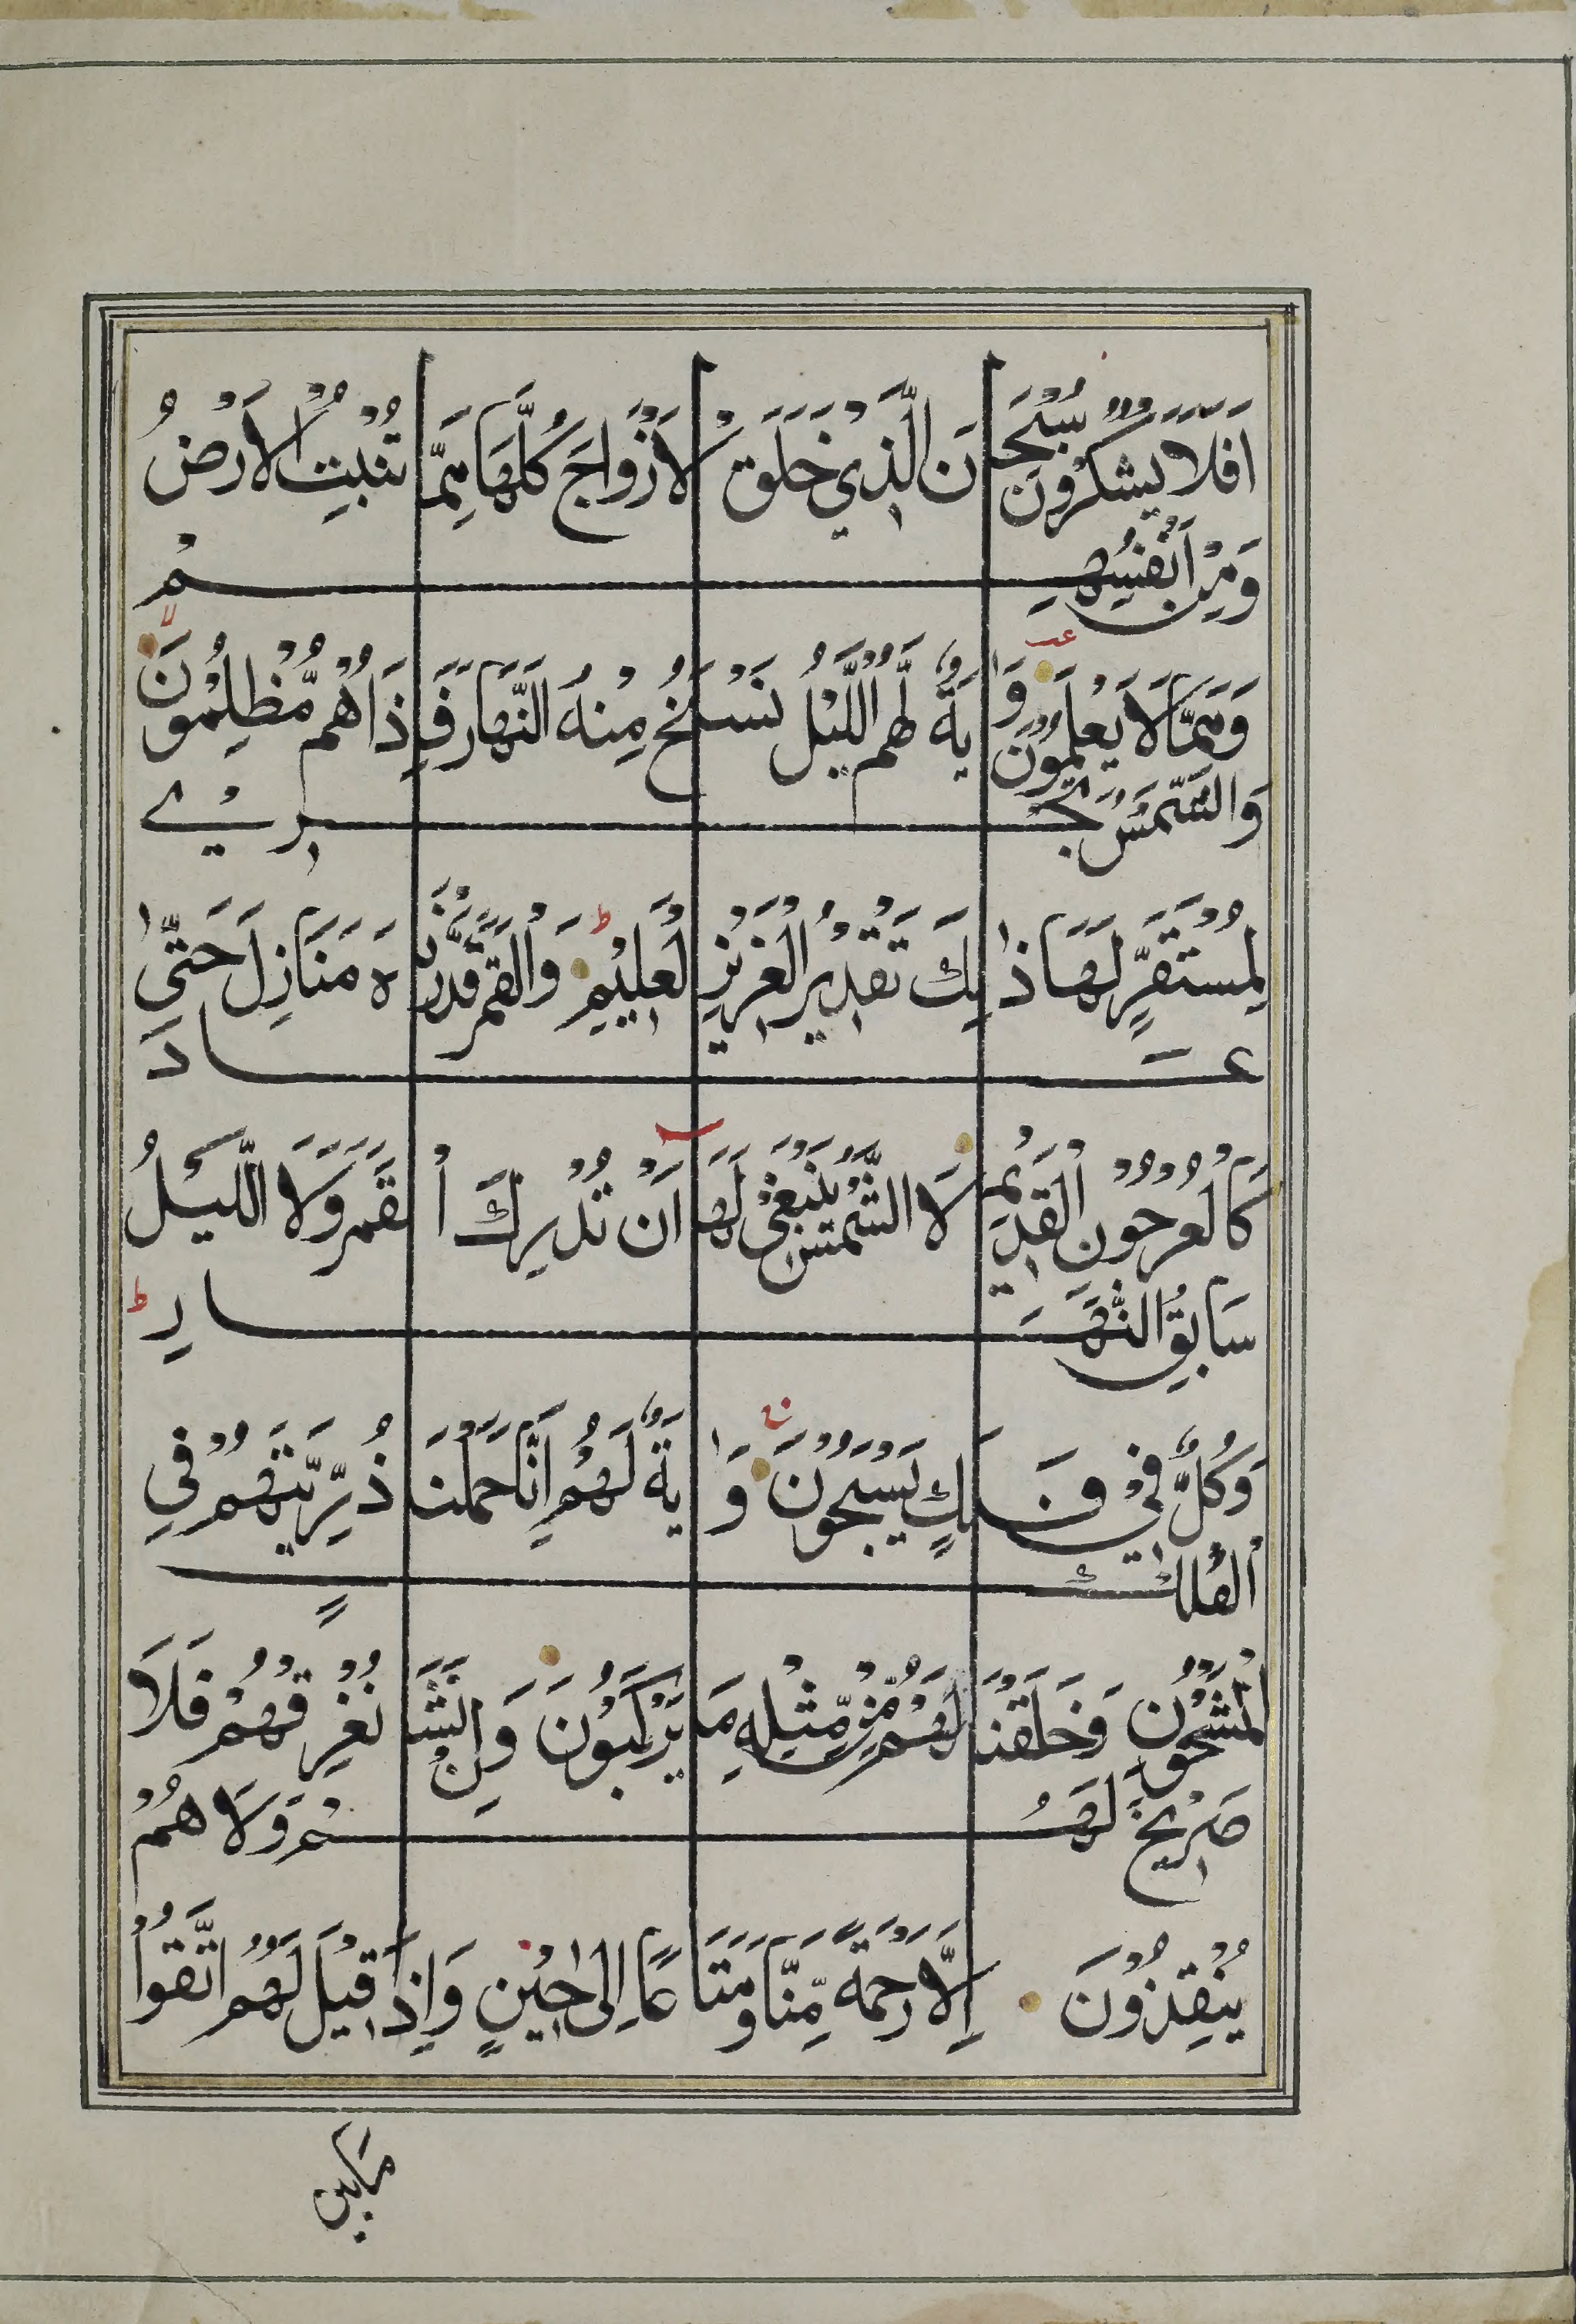 اَفَلَا يَشْكُرُوْنَ سُبْحَانَ الَّذِيْ خَلَقَ الْاَزْوَاجَ كُلَّهَا مِمَّا تُنْبِتُ الْاَرْضُ
وَمِنْ اَنْفُسِهِمْ
وَمِمَّا لَا يَعْلَمُوْنَ وَاٰيَةٌ لَّهُمُ اللَّيْلُ نَسْلَخُ مِنْهُ النَّهَارَ فَاِذَا هُمْ مُّظْلِمُوْنَ
وَالشَّمْسُ تَجْرِيْ
لِمُسْتَقَرٍّ لَّهَا ذٰلِكَ تَقْدِيْرُ الْعَزِيْزِ الْعَلِيْمِ وَالْقَمَرَ قَدَّرْنٰهُ مَنَازِلَ حَتّٰى
عَادَ
كَالْعُرْجُوْنِ الْقَدِيْمِ لَا الشَّمْسُ يَنْبَغِيْ لَهَا اَنْ تُدْرِكَ الْقَمَرَ وَلَا اللَّيْلُ
سَابِقُ النَّهَارِ
وَكُلٌّ فِيْ فَلَكٍ يَسْبَحُوْنَ وَاٰيَةٌ لَهُمْ اَنَّا حَمَلْنَا ذُرِّيَّتَهُمْ فِي
الْفُلْكِ
الْمَشْحُوْنِ وَخَلَقْنَا لَهُمْ مِّنْ مِّثْلِهٖ مَا يَرْكَبُوْنَ وَاِنْ نَّشَأْ نُغْرِقْهُمْ فَلَا
صَرِيْخَ لَهُمْ وَلَا هُمْ
يُنْقَذُوْنَ اِلَّا رَحْمَةً مِّنَّا وَمَتَاعًا اِلٰى حِيْنٍ وَاِذَا قِيْلَ لَهُمُ اتَّقُوْا
مَا بَيْنَ